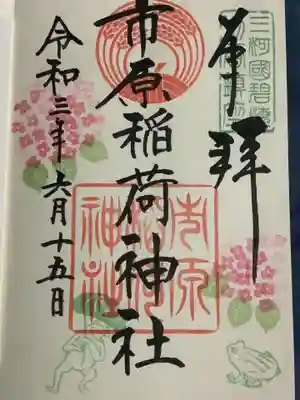 奉拝
三河國碧海
市原稲荷神社
市原稲荷神社
令和三年六月十五日